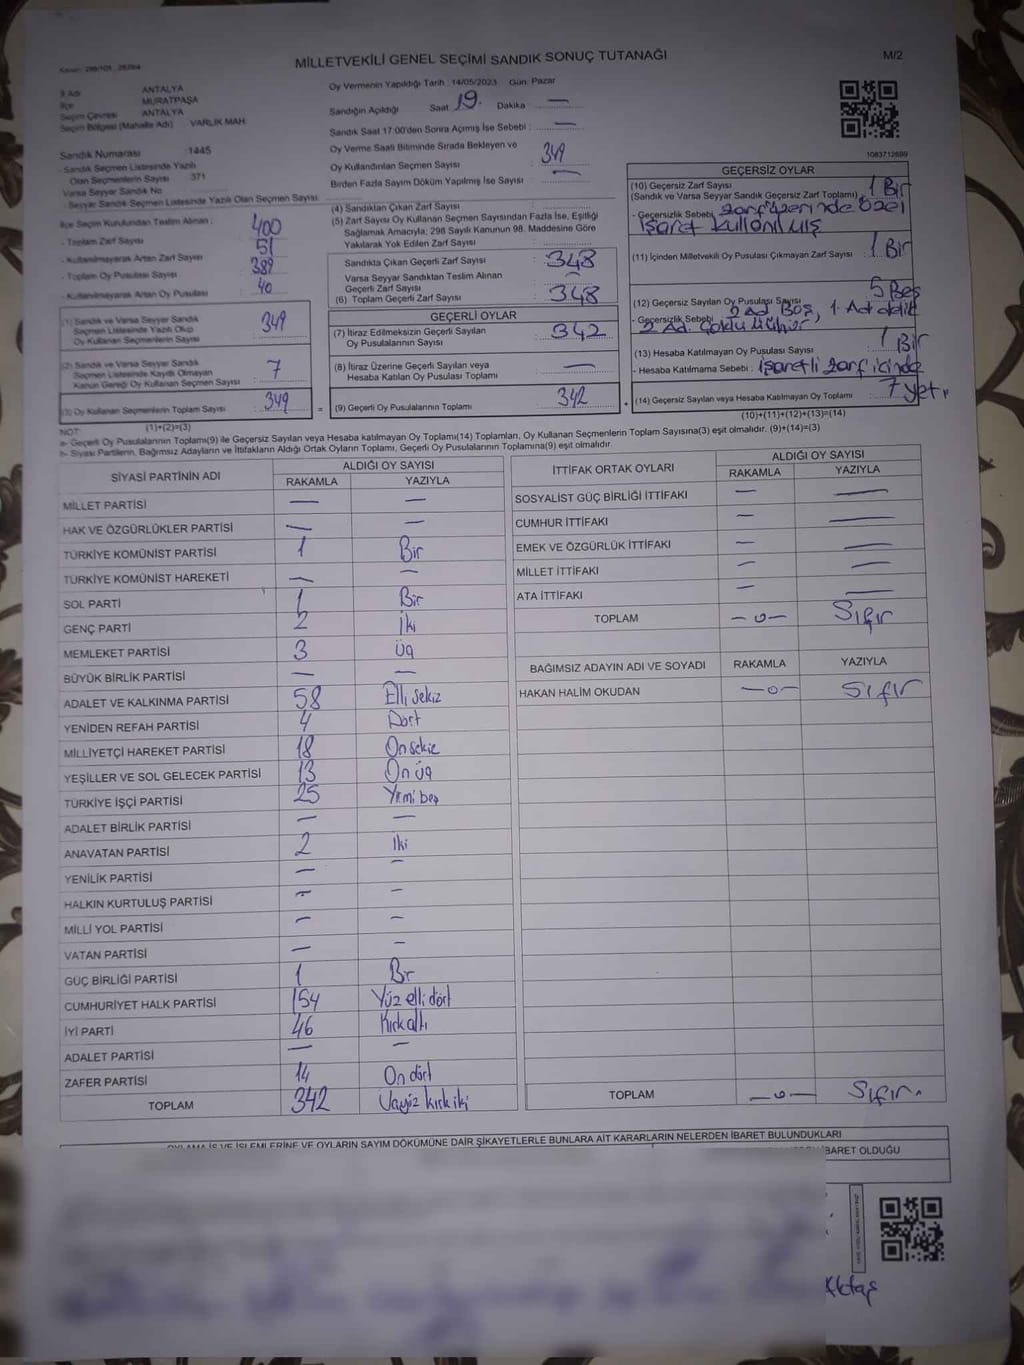 MİLLETVEKİLİ GENEL SEÇİMİ SANDIK SONUÇ TUTANAĞI
M/2
İl Adı ANTALYA
İlçe MURATPAŞA
Seçim Çevresi ANTALYA
Seçim Bölgesi (Mahalle Adı) VARLIK MAH.
Sandık Numarası 1445
- Sandık Seçmen Listesinde Yazılı
Olan Seçmenlerin Sayısı 371
Varsa Seyyar Sandık No
- Seyyar Sandık Seçmen Listesinde Yazılı Olan Seçmen Sayısı
İlçe Seçim Kurulundan Teslim Alınan :
- Toplam Zarf Sayısı 400
- Kullanılmayarak Artan Zarf Sayısı 51
- Toplam Oy Pusulası Sayısı 389
- Kullanılmayarak Artan Oy Pusulası 40
(1) Sandık ve Varsa Seyyar Sandık
Seçmen Listesinde Yazılı Olup
Oy Kullanan Seçmenlerin Sayısı 349
(2) Sandık ve Varsa Seyyar Sandık
Seçmen Listesinde Kayıtlı Olmayan
Kanun Gereği Oy Kullanan Seçmen Sayısı 7
(3) Oy Kullanan Seçmenlerin Toplam Sayısı 349
(1)+(2)=(3)
Oy Vermenin Yapıldığı Tarih : 14/05/2023 Gün: Pazar
Sandığın Açıldığı Saat 19. Dakika : —
Sandık Saat 17:00'den Sonra Açılmış İse Sebebi : —
Oy Verme Saati Bitiminde Sırada Bekleyen ve
Oy Kullandırılan Seçmen Sayısı 349
Birden Fazla Sayım Döküm Yapılmış İse Sayısı : —
(4) Sandıktan Çıkan Zarf Sayısı
(5) Zarf Sayısı Oy Kullanan Seçmen Sayısından Fazla İse, Eşitliği
Sağlamak Amacıyla; 298 Sayılı Kanunun 98. Maddesine Göre
Yakılarak Yok Edilen Zarf Sayısı
Sandıkta Çıkan Geçerli Zarf Sayısı : 348
Varsa Seyyar Sandıktan Teslim Alınan
Geçerli Zarf Sayısı : —
(6) Toplam Geçerli Zarf Sayısı : 348
GEÇERLİ OYLAR
(7) İtiraz Edilmeksizin Geçerli Sayılan
Oy Pusulalarının Sayısı : 342
(8) İtiraz Üzerine Geçerli Sayılan veya
Hesaba Katılan Oy Pusulası Toplamı : —
= (9) Geçerli Oy Pusulalarının Toplamı 342
1083712699
GEÇERSİZ OYLAR
(10) Geçersiz Zarf Sayısı
(Sandık ve Varsa Seyyar Sandık Geçersiz Zarf Toplamı) 1 Bir
- Geçersizlik Sebebi : zarf üzerinde özel
işaret kullanılmış
(11) İçinden Milletvekili Oy Pusulası Çıkmayan Zarf Sayısı : 1 Bir
(12) Geçersiz Sayılan Oy Pusulası Sayısı 5 Beş
- Geçersizlik Sebebi : 2 Ad Boş, 1. Ad
2 Ad. Çoklu Mühür
(13) Hesaba Katılmayan Oy Pusulası Sayısı 1 Bir
- Hesaba Katılmama Sebebi : işaretli zarf içinde
(14) Geçersiz Sayılan veya Hesaba Katılmayan Oy Toplamı : 7 yedi
(10)+(11)+(12)+(13)=(14)
NOT:
a- Geçerli Oy Pusulalarının Toplamı(9) ile Geçersiz Sayılan veya Hesaba katılmayan Oy Toplamı(14) Toplamları, Oy Kullanan Seçmenlerin Toplam Sayısına(3) eşit olmalıdır. (9)+(14)=(3)
b- Siyasi Partilerin, Bağımsız Adayların ve İttifakların Aldığı Ortak Oyların Toplamı, Geçerli Oy Pusulalarının Toplamına(9) eşit olmalıdır.
SİYASİ PARTİNİN ADI ALDIĞI OY SAYISI
RAKAMLA YAZIYLA
MİLLET PARTİSİ — —
HAK VE ÖZGÜRLÜKLER PARTİSİ — —
TÜRKİYE KOMÜNİST PARTİSİ 1 Bir
TÜRKİYE KOMÜNİST HAREKETİ — —
SOL PARTİ 1 Bir
GENÇ PARTİ 2 İki
MEMLEKET PARTİSİ 3 üç
BÜYÜK BİRLİK PARTİSİ — —
ADALET VE KALKINMA PARTİSİ 58 Elli sekiz
YENİDEN REFAH PARTİSİ 4 Dört
MİLLİYETÇİ HAREKET PARTİSİ 18 On sekiz
YEŞİLLER VE SOL GELECEK PARTİSİ 13 On üç
TÜRKİYE İŞÇİ PARTİSİ 25 Yirmi beş
ADALET BİRLİK PARTİSİ — —
ANAVATAN PARTİSİ 2 İki
YENİLİK PARTİSİ — —
HALKIN KURTULUŞ PARTİSİ — —
MİLLİ YOL PARTİSİ — —
VATAN PARTİSİ — —
GÜÇ BİRLİĞİ PARTİSİ 1 Bir
CUMHURİYET HALK PARTİSİ 154 Yüz elli dört
İYİ PARTİ 46 Kırk altı
ADALET PARTİSİ — —
ZAFER PARTİSİ 14 On dört
TOPLAM 342 Üçyüz kırk iki
İTTİFAK ORTAK OYLARI ALDIĞI OY SAYISI
RAKAMLA YAZIYLA
SOSYALİST GÜÇ BİRLİĞİ İTTİFAKI — —
CUMHUR İTTİFAKI — —
EMEK VE ÖZGÜRLÜK İTTİFAKI — —
MİLLET İTTİFAKI — —
ATA İTTİFAKI — —
TOPLAM —0— Sıfır
BAĞIMSIZ ADAYIN ADI VE SOYADI RAKAMLA YAZIYLA
HAKAN HALİM OKUDAN —0— Sıfır
TOPLAM —0— Sıfır.
OYLAMA İŞ VE İŞLEMLERİNE VE OYLARIN SAYIM DÖKÜMÜNE DAİR ŞİKAYETLERLE BUNLARA AİT KARARLARIN NELERDEN İBARET BULUNDUKLARI
BARET OLDUĞU